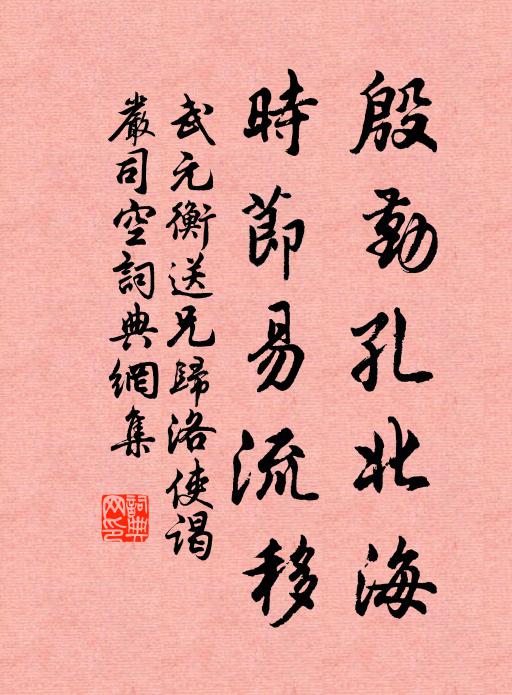 殷勤孔北海
時節易流移
武元衡送兄歸洛使謁
嚴司空詞典網集
詞典网印